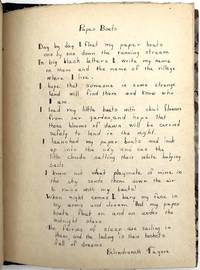 Paper Boats
Day by day I float my paper boats
one by one down the running stream.
In big black letters I write my name
on them and the name of the village
where I live.
I hope that someone in some strange
land will find them and know who
I am.
I load my little boats with shiuli flowers
from our garden, and hope that
these blooms of dawn will be carried
safely to land in the night.
I launch my paper boats and look
up into the sky and see the
little clouds setting their white bulging
sails.
I know not what playmate of mine in
the sky sends them down the air
to race with my boats!
When night comes I bury my face in
my arms and dream that my paper
boats float on and on under the
midnight stars.
The fairies of sleep are sailing in
them, and the lading is their baskets
full of dreams.
Rabindranath Tagore